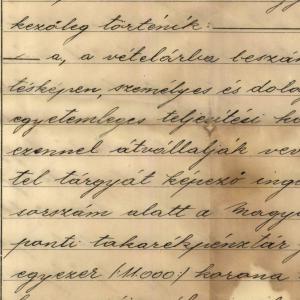 kezőleg történik:
a, a vételárba beszám
tésképen, személyes és dolog
egyetemleges teljesítési kö
ezennel átvállalják vev
tel tárgyát képező inga
sorszám alatt a Magya
ponti takarékpénztár j
egyezer /:11.000:/ korona